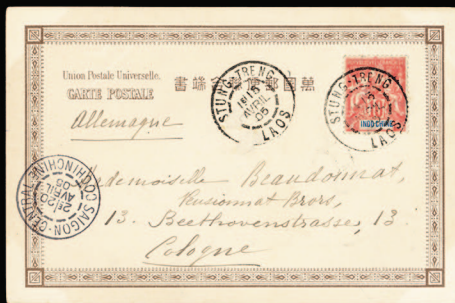 Union Postale Universelle. 萬國郵政會端書
CARTE POSTALE
Allemagne
STUNG-TRENG
15
AVRIL
05
LAOS
STUNG-TRENG
LAOS
INDO-CHINE
SAIGON-CENTRAL
COCHINCHINE
AVRIL
05
Mademoiselle Beaudonnat,
Pensionnat Brors,
13. Beethovenstrasse, 13
Cologne